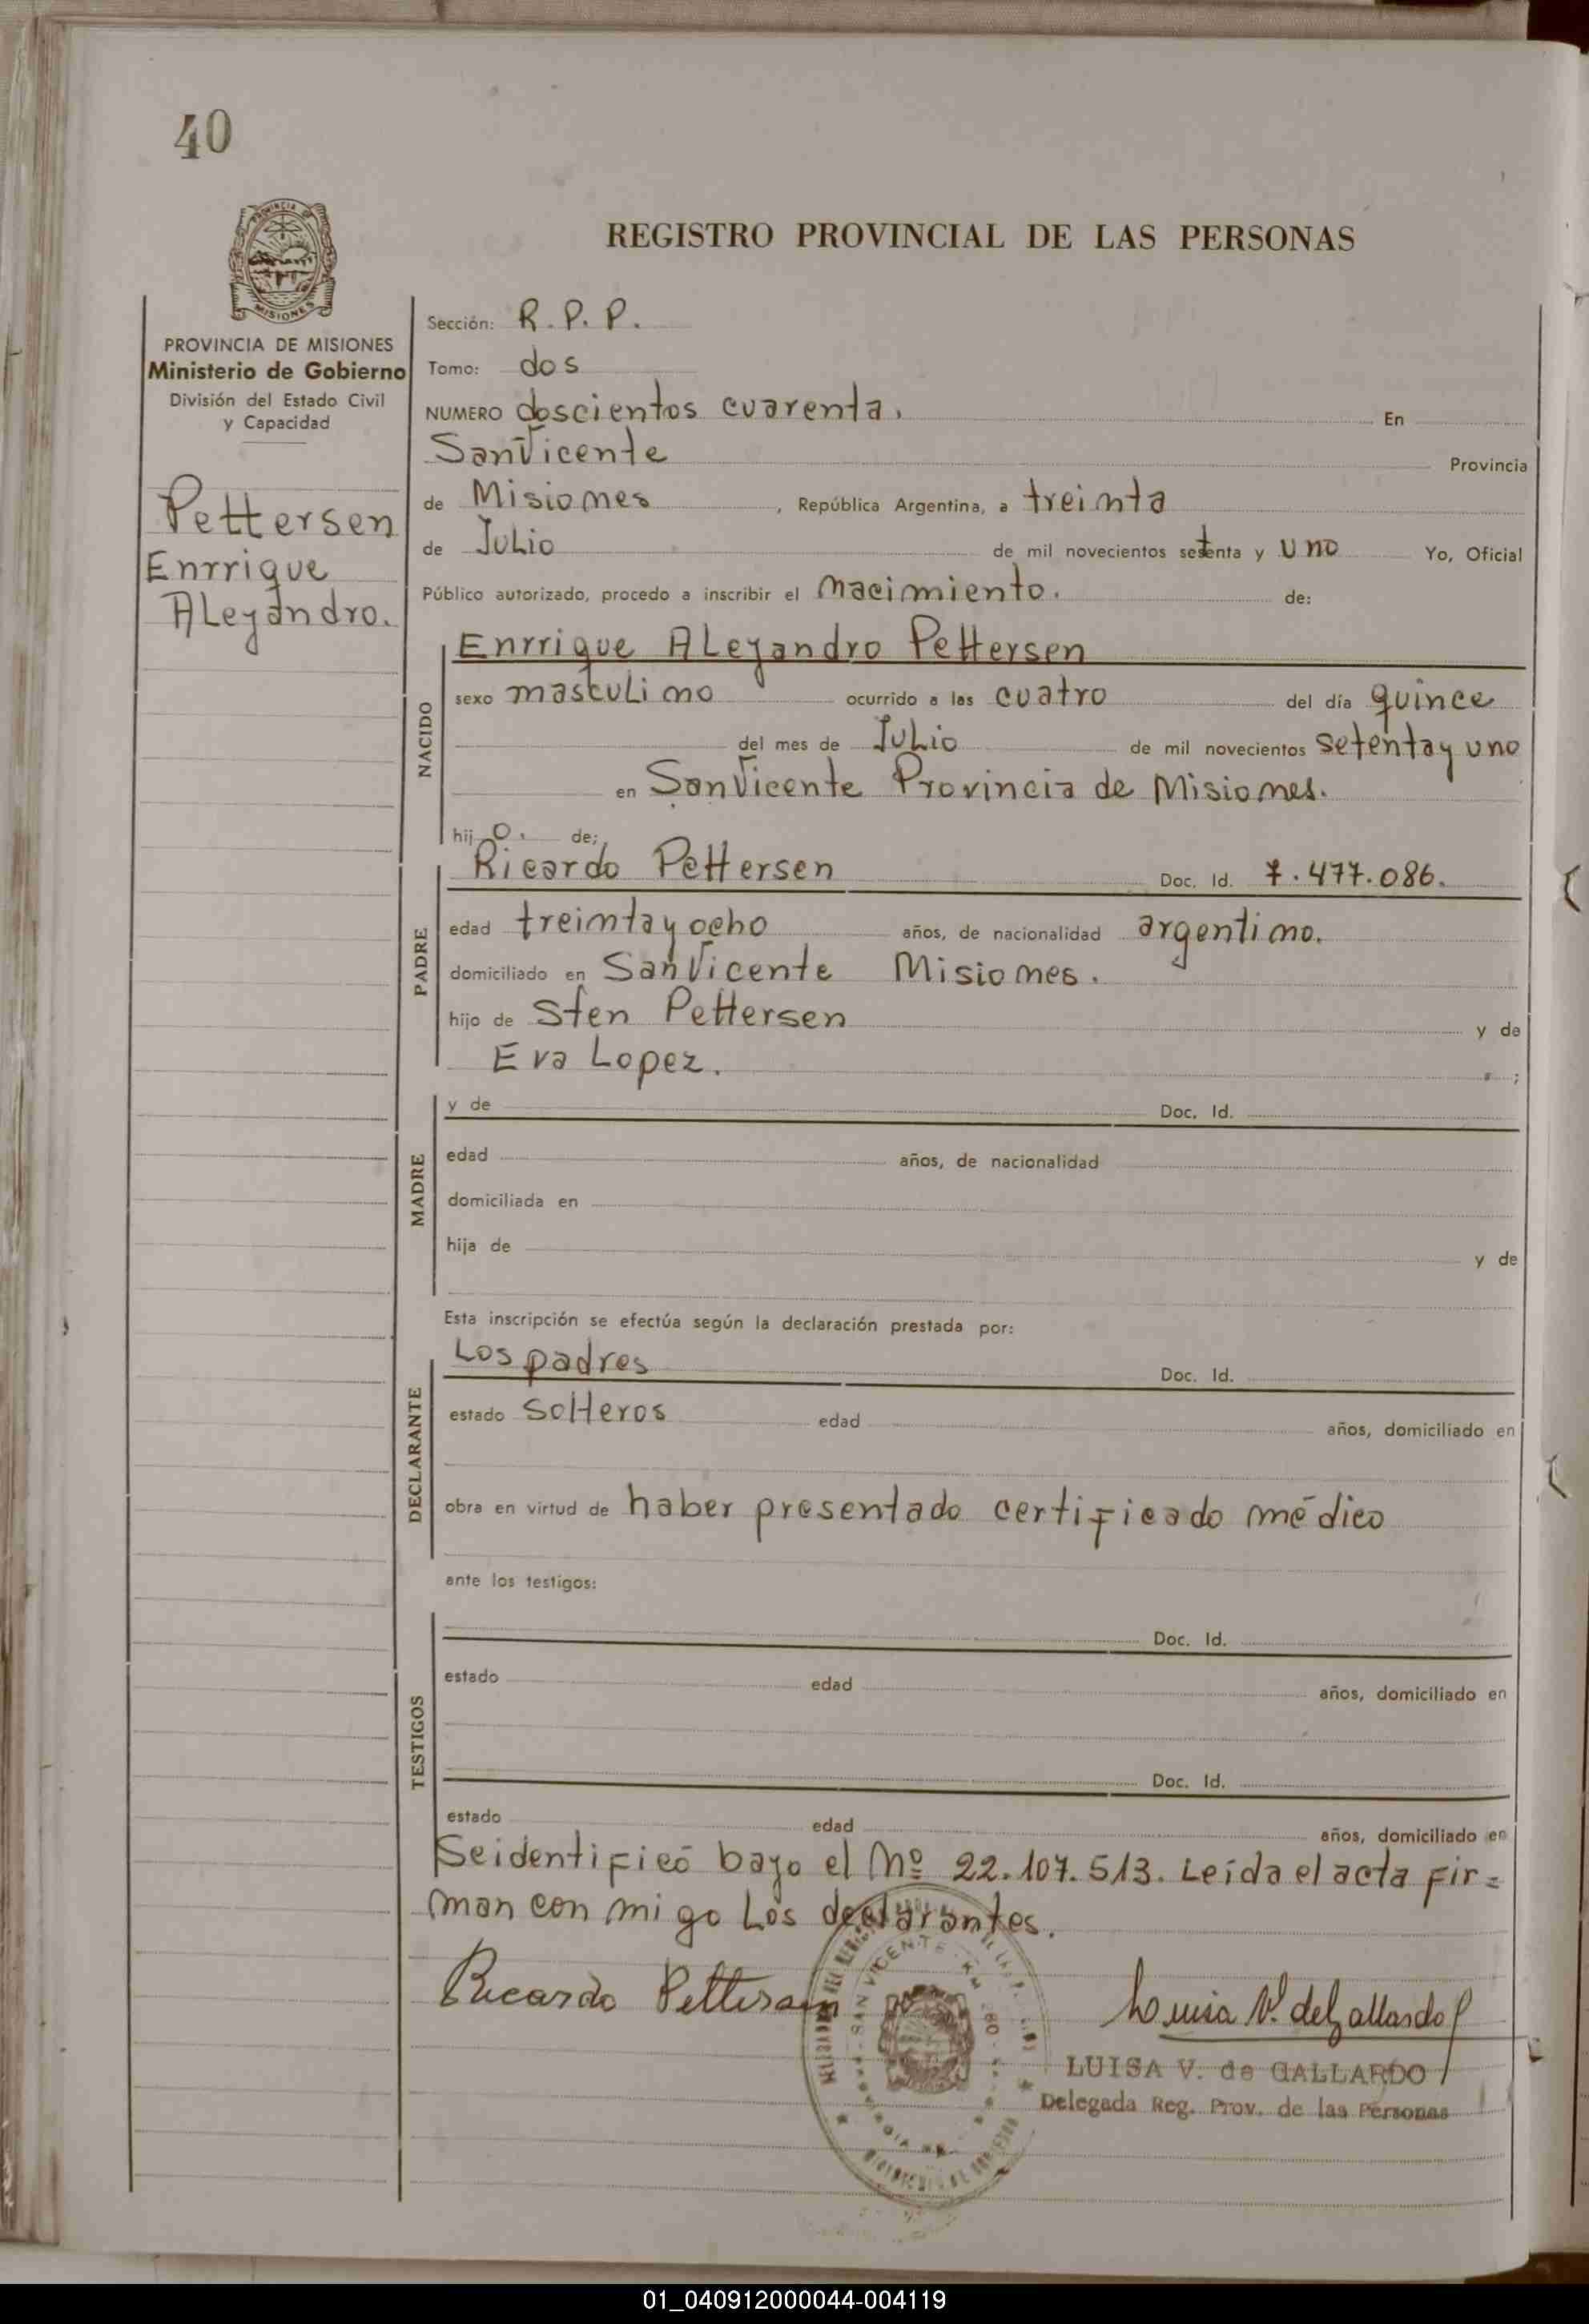 40
PROVINCIA DE
MISIONES
REGISTRO PROVINCIAL DE LAS PERSONAS
PROVINCIA DE MISIONES
Ministerio de Gobierno
División del Estado Civil
y Capacidad
Pettersen
Enrrique
ALejandro.
Sección: R. P. P.
Tomo: dos
NUMERO doscientos cuarenta. En
San Vicente Provincia
de Misiones , República Argentina, a treinta
de Julio de mil novecientos setenta y uno Yo, Oficial
Público autorizado, procedo a inscribir el nacimiento. de:
NACIDO
Enrrique ALejandro Pettersen
sexo mascuLino ocurrido a las cuatro del día quince
del mes de JuLio de mil novecientos setenta y uno
en San Vicente Provincia de Misiones.
hij o. de;
PADRE
Ricardo Pettersen Doc. Id. 7.477.086.
edad treinta y ocho años, de nacionalidad argentino.
domiciliado en San Vicente Misiones.
hijo de Sten Pettersen y de
Eva Lopez. ;
MADRE
y de Doc. Id.
edad años, de nacionalidad
domiciliada en
hija de y de
Esta inscripción se efectúa según la declaración prestada por:
DECLARANTE
Los padres Doc. Id.
estado solteros edad años, domiciliado en
obra en virtud de haber presentado certificado médico
ante los testigos:
TESTIGOS
Doc. Id.
estado edad años, domiciliado en
Doc. Id.
estado edad años, domiciliado en
Se identificó bajo el Nº 22.107.513. Leída el acta fir=
man con migo Los declarantes.
Ricardo Pettersen
Luisa V. de Gallardo
SAN VICENTE
LUISA V. de GALLARDO
Delegada Reg. Prov. de las Personas
01_040912000044-004119